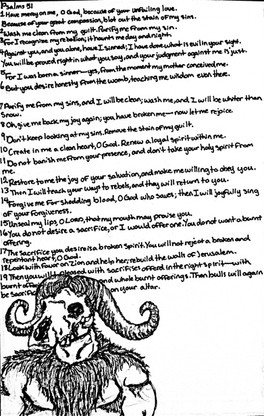 Psalms 51
1 Have mercy on me, O God, because of your unfailing love.
Because of your great compassion, blot out the stain of my sins.
2 Wash me clean from my guilt. Purify me from my sin.
3 For I recognize my rebellion; it haunts me day and night.
4 Against you, and you alone, have I sinned; I have done what is evil in your sight.
You will be proved right in what you say, and your judgment against me is just.
5 For I was born a sinner—yes, from the moment my mother conceived me.
6 But you desire honesty from the womb, teaching me wisdom even there.
7 Purify me from my sins, and I will be clean; wash me, and I will be whiter than
snow.
8 Oh, give me back my joy again; you have broken me—now let me rejoice.
9 Don't keep looking at my sins. Remove the stain of my guilt.
10 Create in me a clean heart, O God. Renew a loyal spirit within me.
11 Do not banish me from your presence, and don't take your Holy Spirit from
me.
12 Restore to me the joy of your salvation, and make me willing to obey you.
13 Then I will teach your ways to rebels, and they will return to you.
14 Forgive me for shedding blood, O God who saves; then I will joyfully sing
of your forgiveness.
15 Unseal my lips, O Lord, that my mouth may praise you.
16 You do not desire a sacrifice, or I would offer one. You do not want a burnt
offering.
17 The sacrifice you desire is a broken spirit. You will not reject a broken and
repentant heart, O God.
18 Look with favor on Zion and help her; rebuild the walls of Jerusalem.
19 Then you will be pleased with sacrifices offered in the right spirit—with
burnt offerings and whole burnt offerings. Then bulls will again
be sacrificed on your altar.